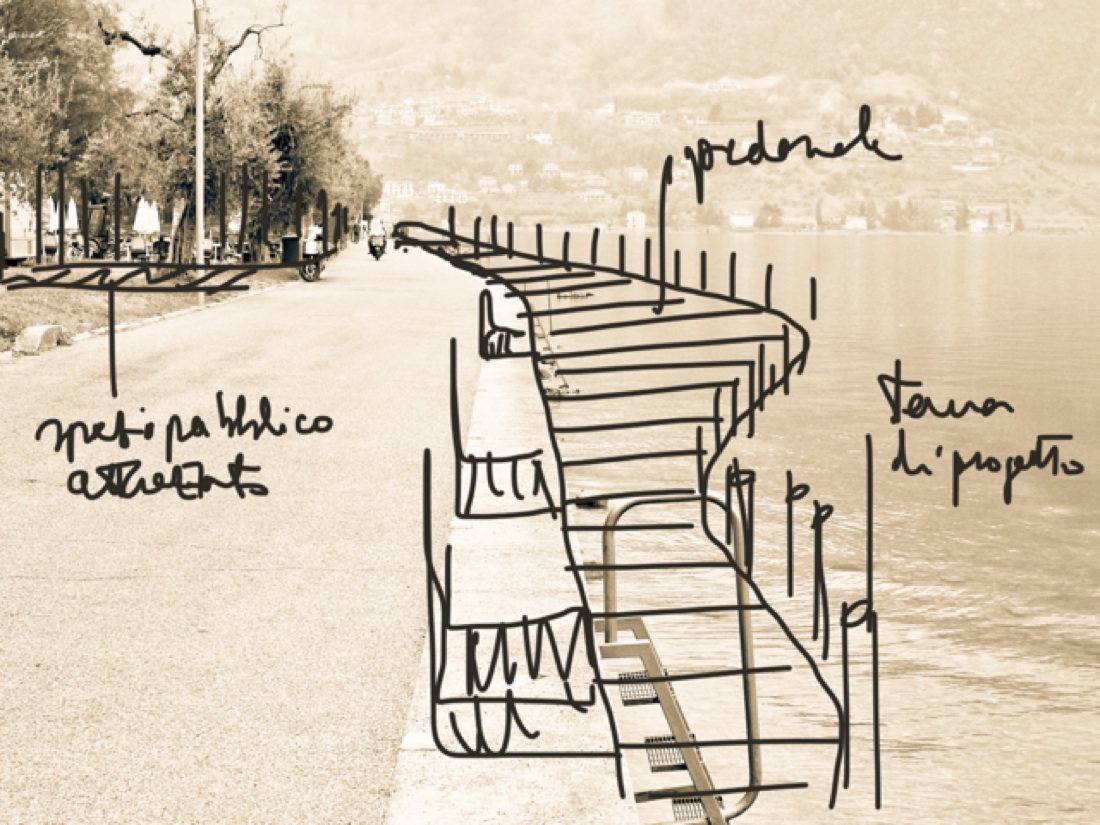 pedonale
Tema
di progetto
spazio pubblico
attrezzato